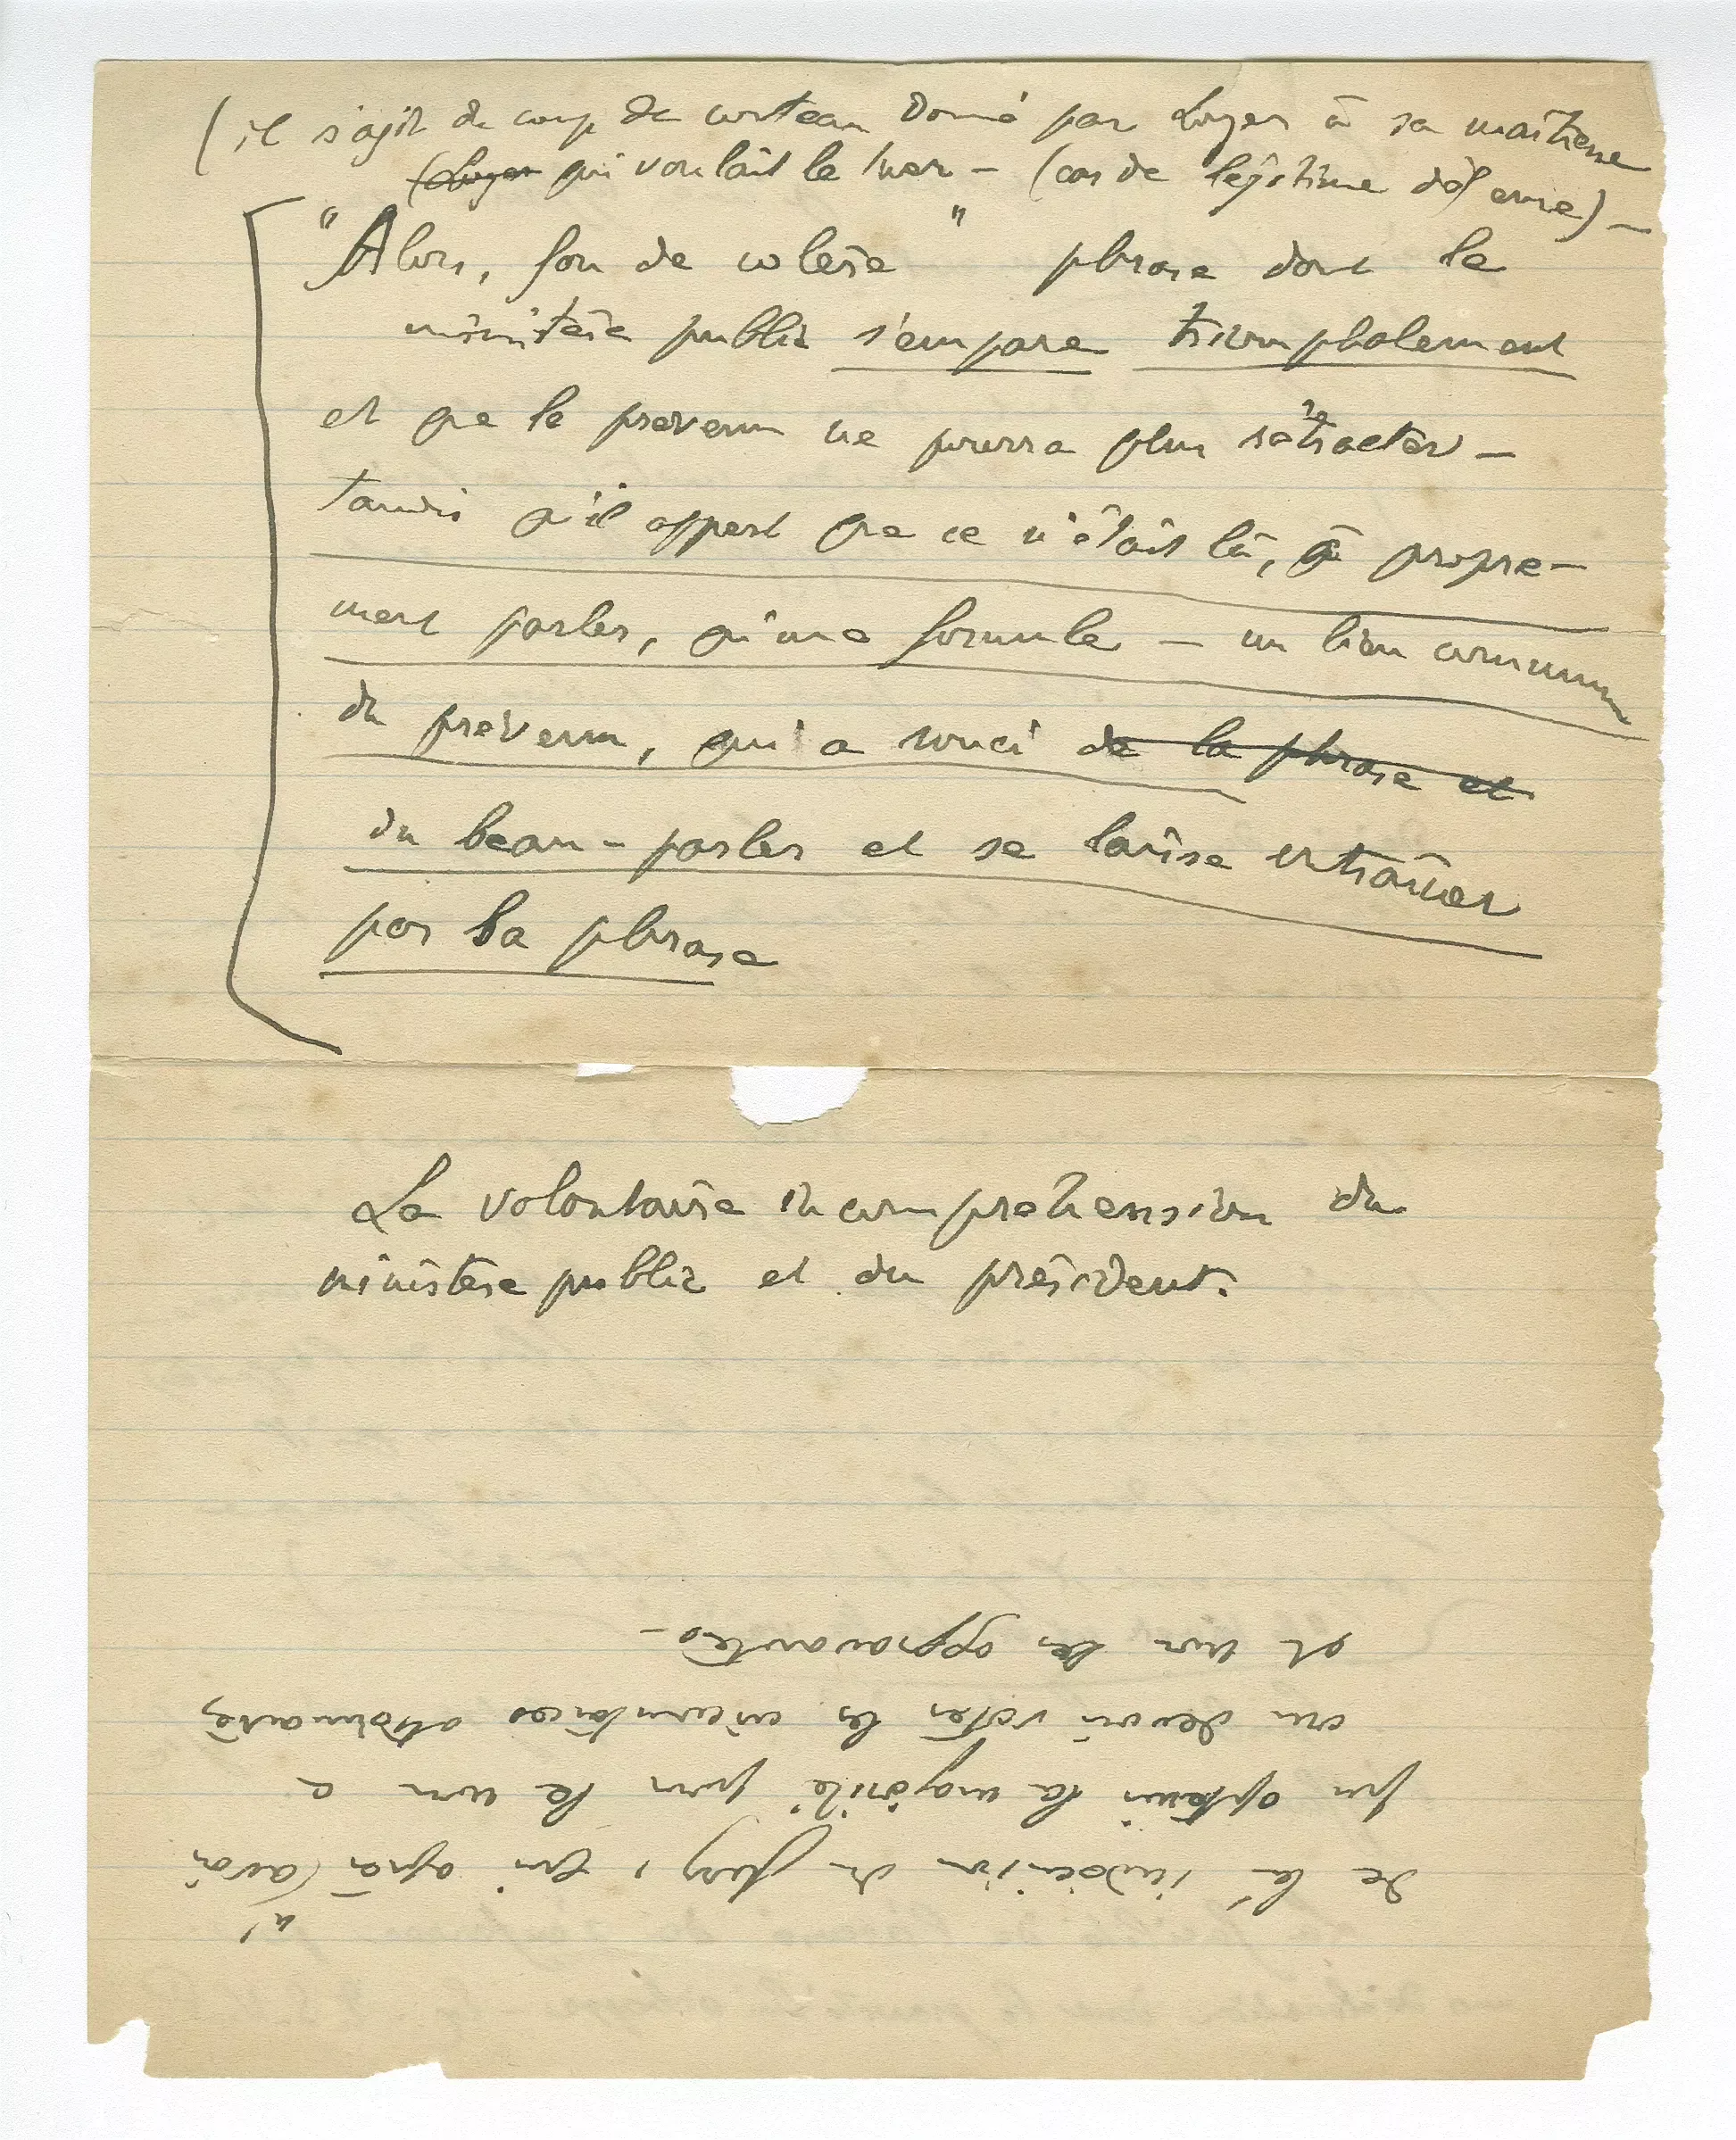 (il s'agit du coup de couteau donné par Loyer à sa maîtresse
(Loyer qui voulait le tuer – (cas de légitime défense) –
"Alors, fou de colère" phrase dont le
ministère public s'empare triomphalement
et que le prévenu ne pourra plus rétracter –
tandis qu'il appert que ce n'était là, à propre-
ment parler, qu'une formule – un lieu commun
du prévenu, qui a souci de la phrase et
du beau-parler et se laisse entraîner
par sa phrase
La volontaire incompréhension du
ministère public et du président.
de l'indécision du jury, qui après (avoir
n'
pu obtenir la majorité pour le non a
cru devoir voter les circonstances atténuantes
et non les aggravantes –